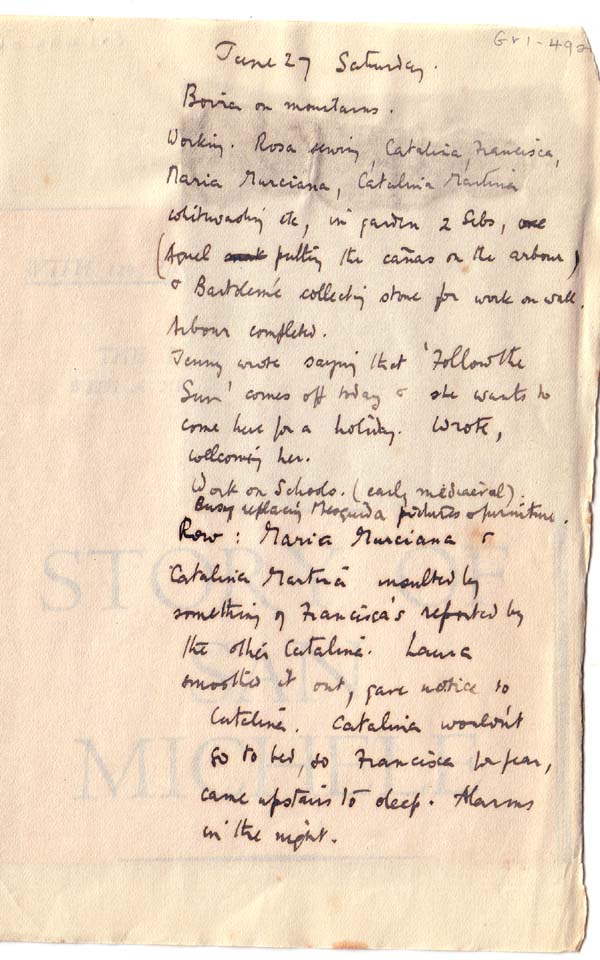 Gr1-492
June 27 Saturday.
Boira on mountains.
Working. Rosa sewing, Catalina, Francisca,
Maria Murciana, Catalina Martina
whitwashing etc, in garden 2 Sebs,
(Aguel putting the cañas on the arbour)
& Bartolemé collecting stone for work on wall.
Arbour completed.
Jenny wrote saying that 'Follow the
Sun' comes off today & she wants to
come here for a holiday. Wrote,
welcoming her.
Work on Schools. (early mediaeval).
Busy replacing Mesquida pictures & furniture.
Row: Maria Murciana &
Catalina Martina insulted by
something of Francisca's reported by
the other Catalina. Laura
smoothed it out, gave notice to
Catalina. Catalina wouldn't
go to bed, so Francisca for fear,
came upstairs to sleep. Alarms
in the night.
STORY OF
SAN
MICHELE